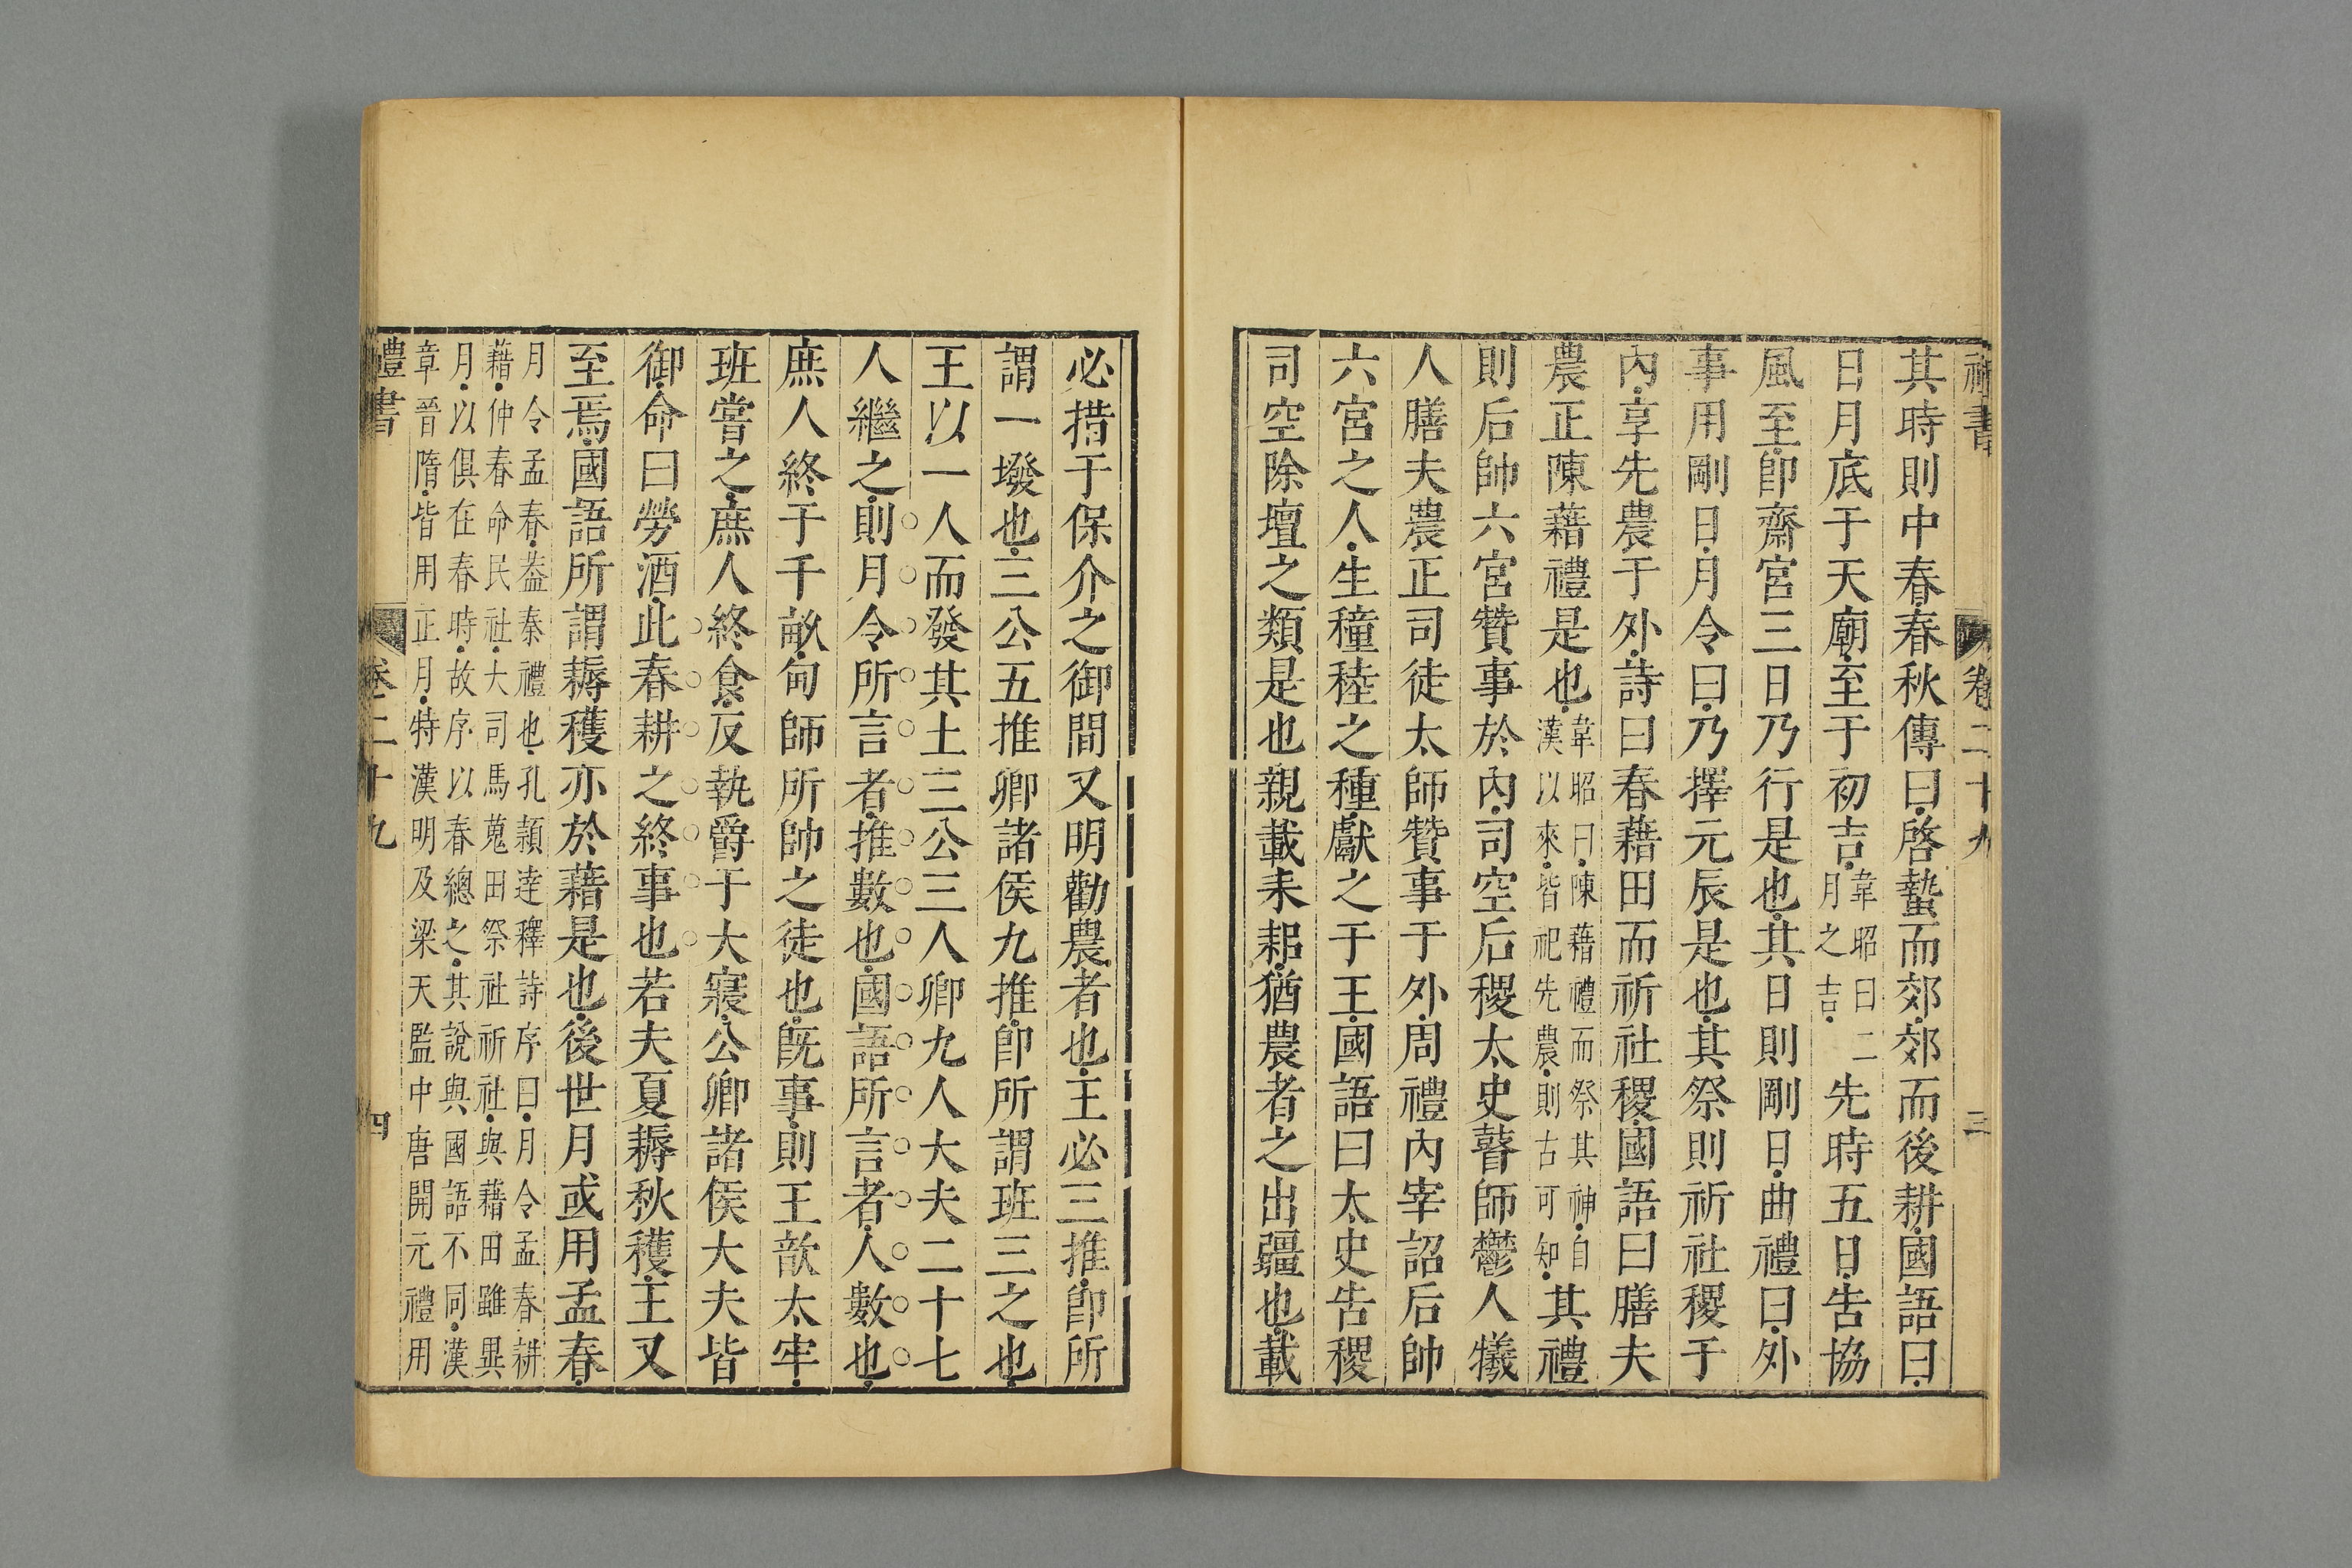 禮書 卷二十九 三
其時則中春春秋傳曰啓蟄而郊郊而後耕國語曰
日月底于天廟至于初吉韋昭曰二月之吉先時五日告協
風至卽齋宮三日乃行是也其日則剛日曲禮曰外
事用剛日月令曰乃擇元辰是也其祭則祈社稷于
內享先農于外詩曰春藉田而祈社稷國語曰膳夫
農正陳藉禮是也韋昭曰陳藉禮而祭其神自漢以來皆祀先農則古可知其禮
則后帥六宮贊事於內司空后稷太史瞽師鬱人犧
人膳夫農正司徒太師贊事于外周禮內宰詔后帥
六宮之人生穜稑之種獻之于王國語曰太史告稷
司空除壇之類是也親載耒耜猶農者之出疆也載
必措于保介之御間又明勸農者也王必三推卽所
謂一墢也三公五推卿諸侯九推卽所謂班三之也
王以一人而發其土三公三人卿九人大夫二十七
人繼之則月令所言者推數也國語所言者人數也
庶人終于千畝甸師所帥之徒也既事則王歆太牢
班嘗之庶人終食反執爵于大寢公卿諸侯大夫皆
御命曰勞酒此春耕之終事也若夫夏耨秋穫王又
至焉國語所謂耨穫亦於藉是也後世月或用孟春
月令孟春葢秦禮也孔頴達釋詩序曰月令孟春耕
藉仲春命民社大司馬蒐田祭社祈社與藉田雖異
月以俱在春時故序以春總之其說與國語不同漢
章晉隋皆用正月特漢明及梁天監中唐開元禮用
禮書 卷二十九 四